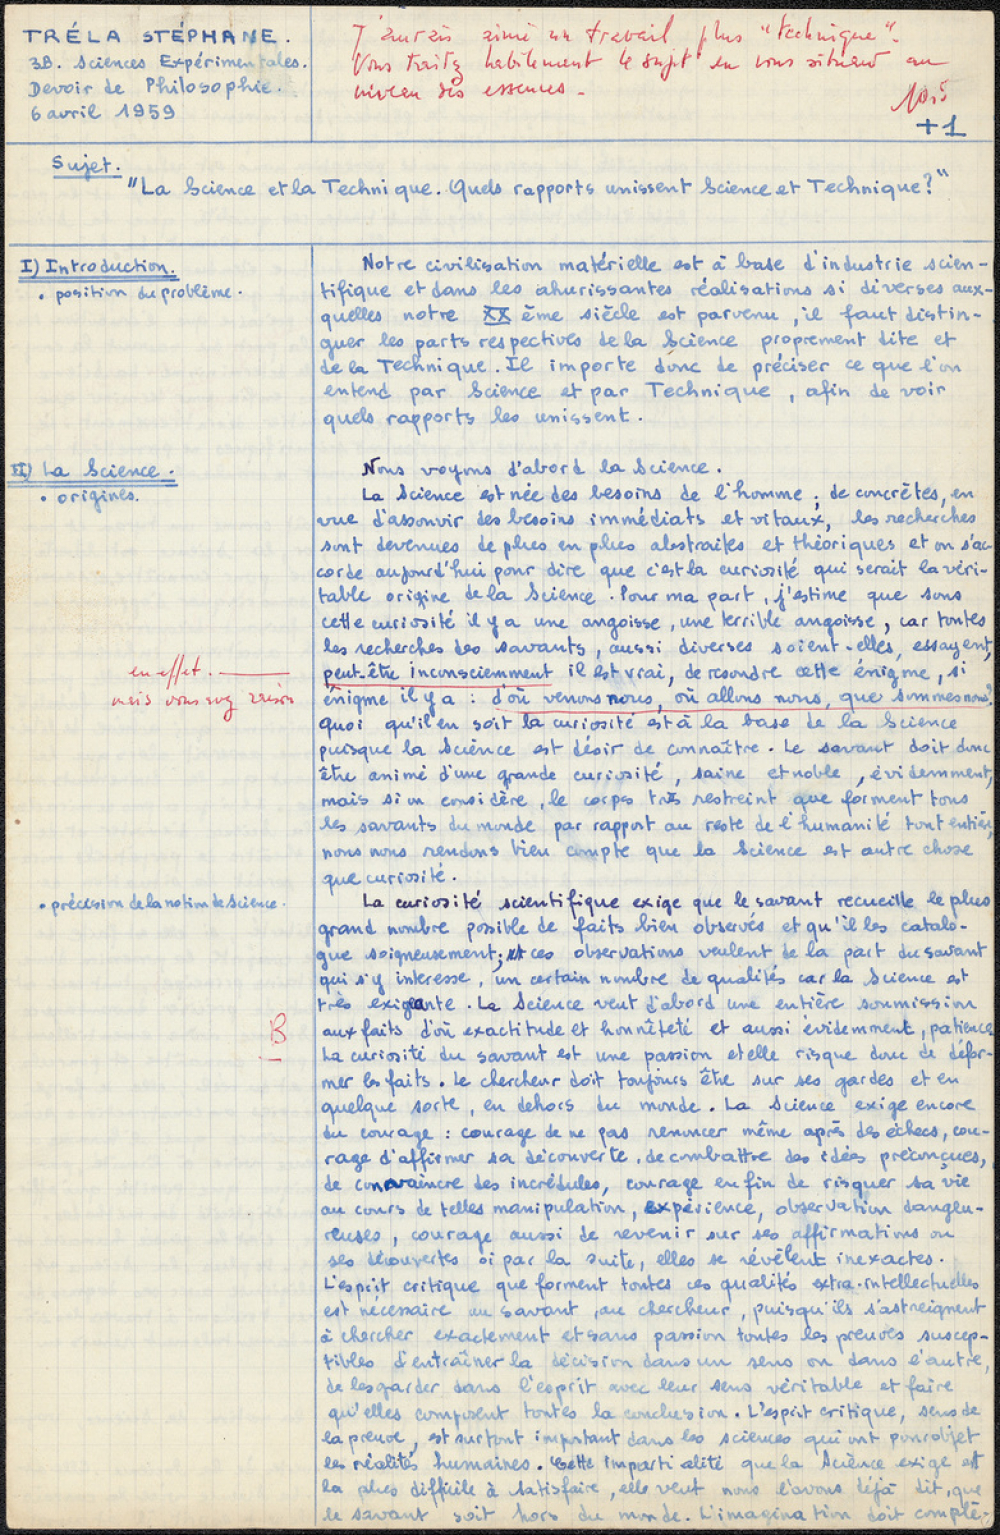 TRÉLA STÉPHANE.
3B. Sciences Expérimentales.
Devoir de Philosophie.
6 avril 1959
J'aurais aimé un travail plus "technique".
Vous traitez habilement le sujet en vous situant au
niveau des essences.
10,5
+1
Sujet.
"La Science et la Technique. Quels rapports unissent Science et Technique?"
I) Introduction.
• position du problème.
Notre civilisation matérielle est à base d'industrie scien-
tifique et dans les ahurissantes réalisations si diverses aux-
quelles notre XX ème siècle est parvenu, il faut distin-
guer les parts respectives de la Science proprement dite et
de la Technique. Il importe donc de préciser ce que l'on
entend par Science et par Technique, afin de voir
quels rapports les unissent.
II) La Science.
• origines.
Nous voyons d'abord la Science.
La Science est née des besoins de l'homme; de concrètes, en
vue d'assouvir des besoins immédiats et vitaux, les recherches
sont devenues de plus en plus abstraites et théoriques et on s'ac-
corde aujourd'hui pour dire que c'est la curiosité qui serait la véri-
table origine de la Science. Pour ma part, j'estime que sous
cette curiosité il y a une angoisse, une terrible angoisse, car toutes
les recherches des savants, aussi diverses soient-elles, essayent,
peut-être inconsciemment il est vrai, de resondre cette énigme, si
énigme il y a : d'où venons nous, où allons nous, que sommes nous?
en effet.
mais vous avez raison
quoi qu'il en soit la curiosité est à la base de la Science
puisque la Science est désir de connaître. Le savant doit donc
être animé d'une grande curiosité, saine et noble, évidemment,
mais si on considère, le corps très restreint que forment tous
les savants du monde par rapport au reste de l'humanité tout entière,
nous nous rendons bien compte que la Science est autre chose
que curiosité.
• précision de la notion de Science.
La curiosité scientifique exige que le savant recueille le plus
grand nombre possible de faits bien observés et qu'il les catalo-
gue soigneusement; et ces observations veulent de la part du savant
qui s'y interesse, un certain nombre de qualités car la Science est
très exigeante. La Science veut d'abord une entière soumission
aux faits d'où exactitude et honnêteté et aussi évidemment, patience.
B
La curiosité du savant est une passion et elle risque donc de défor-
mer les faits. Le chercheur doit toujours être sur ses gardes et en
quelque sorte, en dehors du monde. La Science exige encore
du courage : courage de ne pas renoncer même après des échecs, cou-
rage d'affirmer sa découverte, de combattre des idées préconçues,
de convaincre des incrédules, courage enfin de risquer sa vie
au cours de telles manipulation, expérience, observation dange-
reuses, courage aussi de revenir sur ses affirmations ou
ses découvertes si par la suite, elles se révèlent inexactes.
L'esprit critique que forment toutes ces qualités extra-intellectuelles
est nécessaire au savant, au chercheur, puisqu'ils s'astreignent
à chercher exactement et sans passion toutes les preuves suscep-
tibles d'entraîner la décision dans un sens ou dans l'autre,
de les garder dans l'esprit avec leur sens véritable et faire
qu'elles composent toutes la conclusion. L'esprit critique, sens de
la preuve, est surtout important dans les sciences qui ont pour objet
les réalités humaines. Cette impartialité que la Science exige est
la plus difficile à satisfaire, elle veut nous l'avons déjà dit, que
le savant soit hors du monde. L'imagination doit complé-